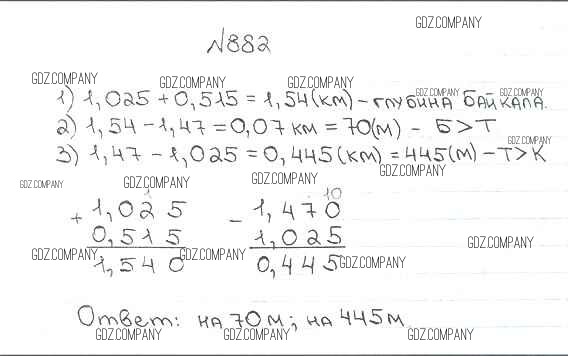 GDZ.COMPANY
№882
GDZ.COMPANY GDZ.COMPANY GDZ.COMPANY
1) 1,025 + 0,515 = 1,54 (км) - глубина байкала.
GDZ.COMPANY GDZ.COMPANY
2) 1,54 - 1,47 = 0,07 км = 70(м) - Б>Т
GDZ.COMPANY
3) 1,47 - 1,025 = 0,445 (км) = 445(м) - Т>К
GDZ.COMPANY GDZ.COMPANY GDZ.COMPANY GDZ.COMPANY
1 · 10
+ 1,025 - 1,470
0,515 1,025
GDZ.COMPANY GDZ.COMPANY GDZ.COMPANY GDZ.COMPANY
1,540 0,445
Ответ: на 70м; на 445м
GDZ.COMPANY GDZ.COMPANY GDZ.COMPANY